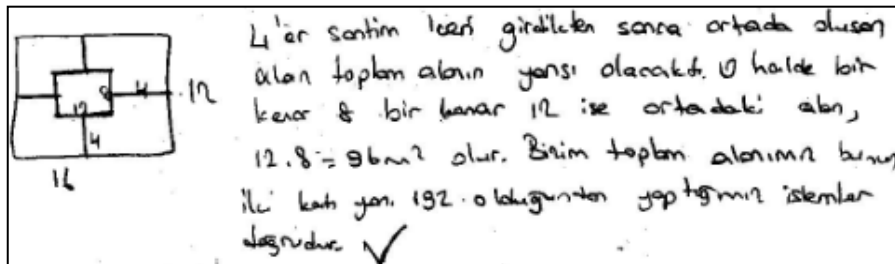 8
4
12
12
4
16
4'er santim içeri girdikten sonra ortada oluşan
alan toplam alanın yarısı olacaktı. O halde bir
kenar 8 bir kenar 12 ise ortadaki alan,
12.8 = 96m² olur. Bizim toplam alanımız bunun
iki katı yani 192 olduğundan yaptığımız işlemler
doğrudur. ✓